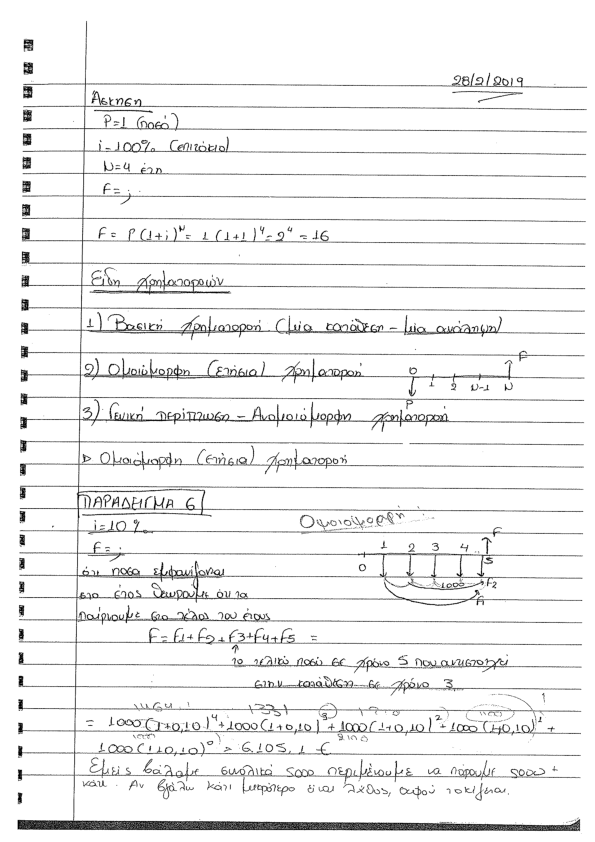 28/2/2019
Άσκηση
P=1 (ποσό)
i=100% (επιτόκιο)
N=4 έτη
F=;
F = P(1+i)^N = 1(1+1)^4 = 2^4 = 16
Είδη χρηματοροών
1) Βασική χρηματοροή (μία κατάθεση - μία ανάληψη)
2) Ομοιόμορφη (ετήσια) χρηματοροή
0 1 2 N-1 N F P
3) Γενική περίπτωση - Ανομοιόμορφη χρηματοροή
▷ Ομοιόμορφη (ετήσια) χρηματοροή
ΠΑΡΑΔΕΙΓΜΑ 6
Ομοιομορφη:
i=10%
F=;
0 1 2 3 4 5 F
1000 F2
F1
ότι ποσα εμφανίζονται
στο έτος θεωρούμε ότι τα
παίρνουμε στο τέλος του έτους
F = F1+F2+F3+F4+F5 =
το τελικό ποσό σε χρόνο 5 που αντιστοιχεί
στην κατάθεση σε χρόνο 3.
1464.1 1331 1210 1100
= 1000(1+0,10)^4+1000(1+0,10)^3+1000(1+0,10)^2+1000(1+0,10)^1+
1000(1+0,10)^0 = 6.105,1 €
Εμείς βάλαμε συνολικά 5000 περιμένουμε να πάρουμε 5000 +
κάτι. Αν βγάλω κάτι μικρότερο είναι λάθος, αφού τοκίζεται.